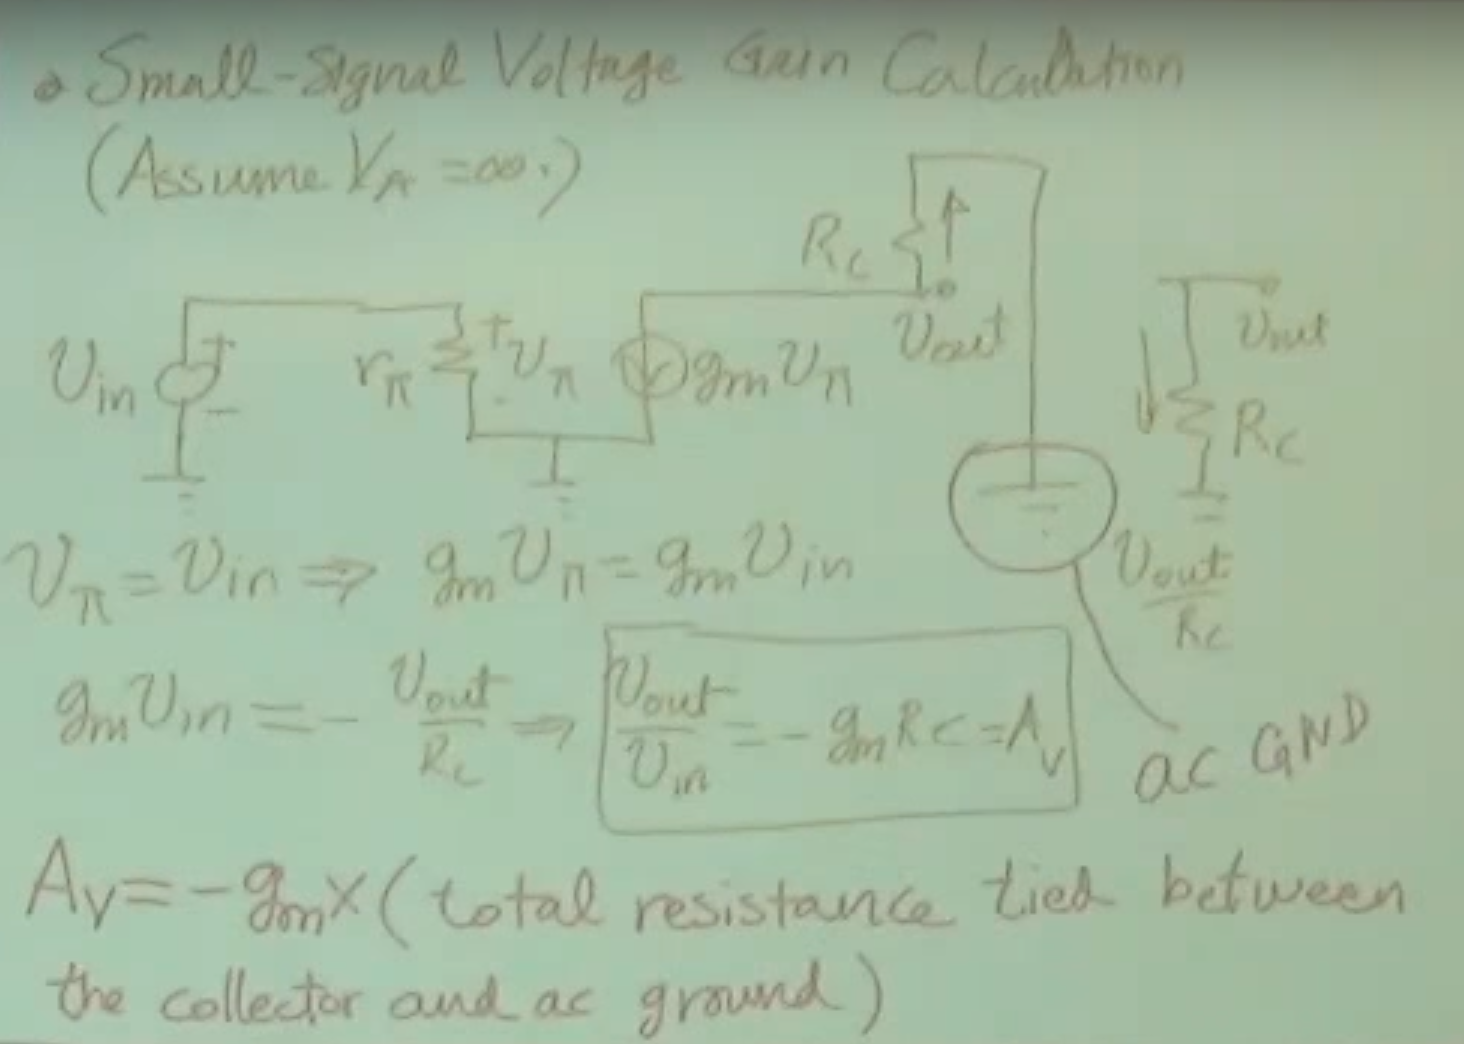 • Small-Signal Voltage Gain Calculation
(Assume V_A = ∞.)
R_C
v_out
v_in + −
r_π + v_π −
g_m v_π
v_out
R_C
v_out / R_C
v_π = v_in ⇒ g_m v_π = g_m v_in
g_m v_in = − v_out / R_C ⇒ v_out / v_in = − g_m R_C = A_v
ac GND
A_v = − g_m × (total resistance tied between
the collector and ac ground)